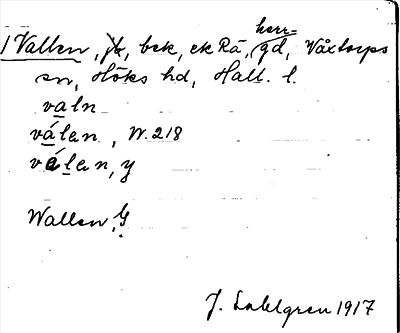 1 Vallen, jb, bek, ek Rä, herr=gd, Våxtorps
sn, Höks hd, Hall. l.
valn
válen, W. 218
válen, y
Wallen, G
J. Sahlgren 1917